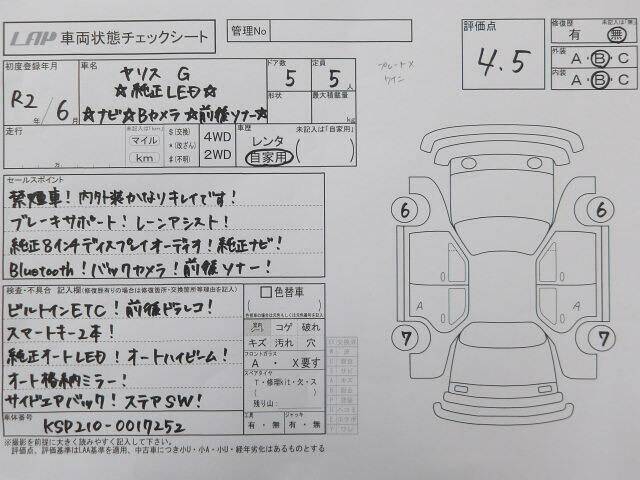 LAP 車両状態チェックシート
管理No
評価点
4.5
修復歴 未記入は「無」
有 ・ 無
外装
A・B・C
内装
A・B・C
初度登録年月
R2年 6月
車名
ヤリス G
☆純正LED☆
☆ナビ☆Bカメラ☆前後ソナー☆
ドア数
5
定員
5人
形状
最大積載量
kg
プレート×
ワイン
走行
万
未記入は「km」
マイル
km
$(交換)
*(改ざん)
#(不明)
4WD
2WD
車歴 未記入は「自家用」
レンタ
自家用
セールスポイント
禁煙車!内外装かなりキレイです!
ブレーキサポート!レーンアシスト!
純正8インチディスプレイオーディオ!純正ナビ!
Bluetooth!バックカメラ!前後ソナー!
検査・不具合 記入欄(修復歴有りの場合は修復箇所・交換箇所等理由を記入)
ビルトインETC!前後ドラレコ!
スマートキー2本!
純正オートLED!オートハイビーム!
オート格納ミラー!
サイドエアバック!ステアSW!
色替車
室内シート
コゲ 破れ
キズ 汚れ 穴
フロントガラス
A ・ X要す
スペアタイヤ
T・修理kit・欠・S
残り山:
工具
有・無
ジャッキ
有・無
車体番号
KSP210-0017252
※撮影を前提に大きく読みやすく記入して下さい。
評価点、評価基準はLAA基準を適用、中古車につき小U・小A・小U・経年劣化はあるものとする
6
6
A
A
7
7